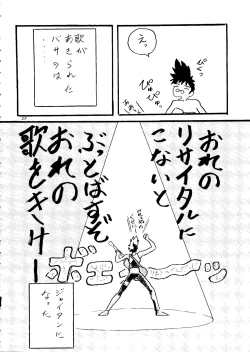 えっ
ぴくっ
ぴゅー
ぴゅー
歌が
あきられた
バサラは
おれの
リサイタルに
こないと
ぶっとばすぞ
おれの
歌をきけー
ボエ〜ッ
ジャイアンに
なった